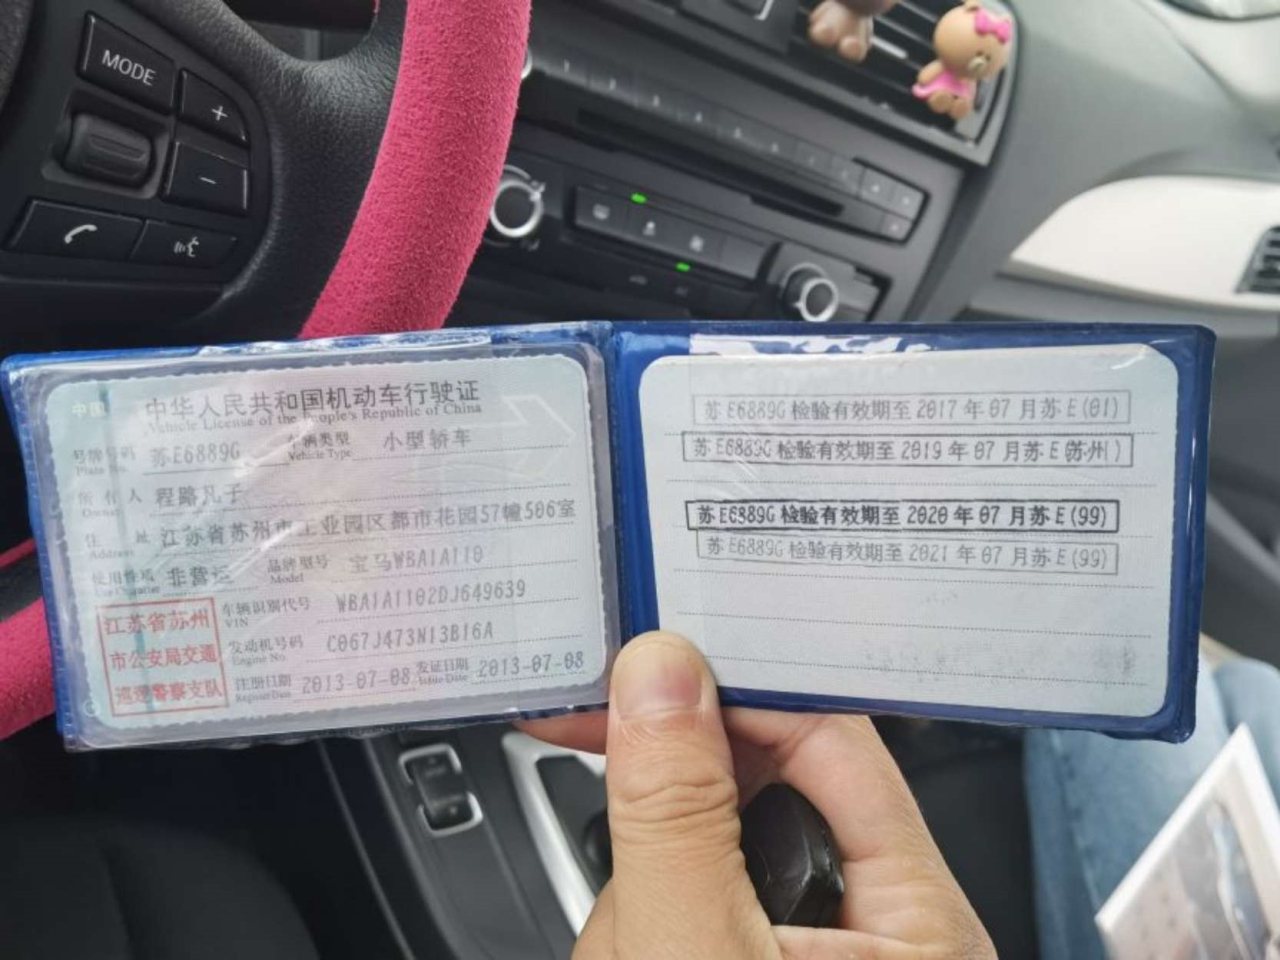 MODE
+
−
中国
中华人民共和国机动车行驶证
Vehicle License of the People's Republic of China
号牌号码 苏E6889G 车辆类型 小型轿车
Plate No. Vehicle Type
所有人 程路凡子
Owner
住址 江苏省苏州市工业园区都市花园57幢506室
Address
使用性质 非营运 品牌型号 宝马WBA1A110
Use Character Model
江苏省苏州
市公安局交通
巡逻警察支队
车辆识别代号 WBA1A1102DJ649639
VIN
发动机号码 C067J473N13B16A
Engine No.
注册日期 2013-07-08 发证日期 2013-07-08
Register Date Issue Date
苏E6889G检验有效期至2017年07月苏E(01)
苏E6889G检验有效期至2019年07月苏E(苏州)
苏E6889G检验有效期至2020年07月苏E(99)
苏E6889G检验有效期至2021年07月苏E(99)